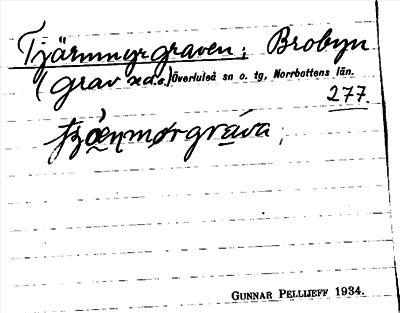 Tjärnmyrgraven; Brobyn
(grav red.) Överluleå sn o. tg, Norrbottens län.
277.
gráva;
GUNNAR PELLIJEFF 1934.